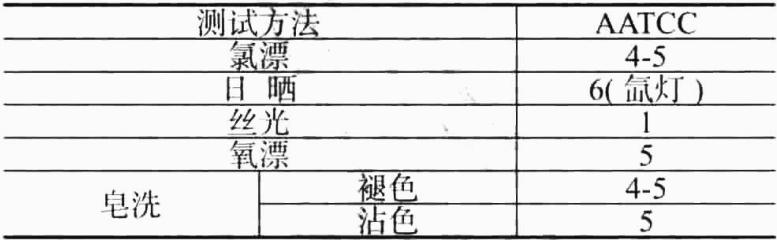 测试方法 AATCC
氯漂 4-5
日 晒 6(氙灯)
丝光 1
氧漂 5
皂洗 褪色 4-5
沾色 5